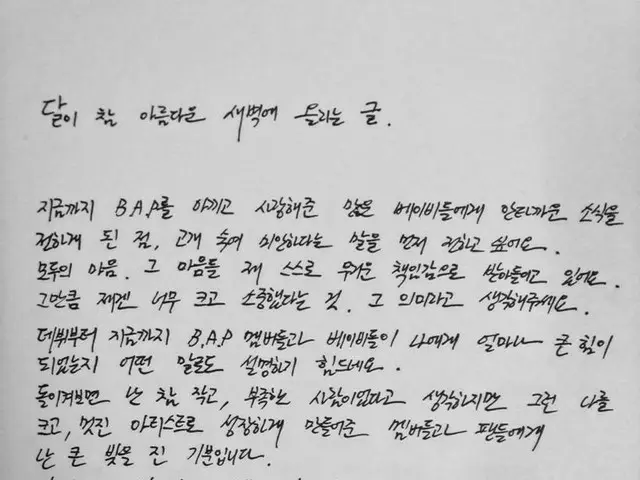 달이 참 아름다운 새벽에 올리는 글.
지금까지 B.A.P를 아끼고 사랑해준 많은 베이비들에게 안타까운 소식을
전하게 된 점, 고개 숙여 미안하다는 말을 먼저 전하고 싶어요.
모두의 마음. 그 마음들 제 스스로 무거운 책임감으로 받아들이고 있어요.
그만큼 제겐 너무 크고 소중했다는 것. 그 의미라고 생각해주세요.
데뷔부터 지금까지 B.A.P 멤버들과 베이비들이 나에게 얼마나 큰 힘이
되었는지 어떤 말로도 설명하기 힘드네요.
돌이켜보면 난 참 작고, 부족한 사람이었다고 생각하지만 그런 나를
크고, 멋진 아티스트로 성장하게 만들어준 멤버들과 팬들에게
난 큰 빚을 진 기분입니다.